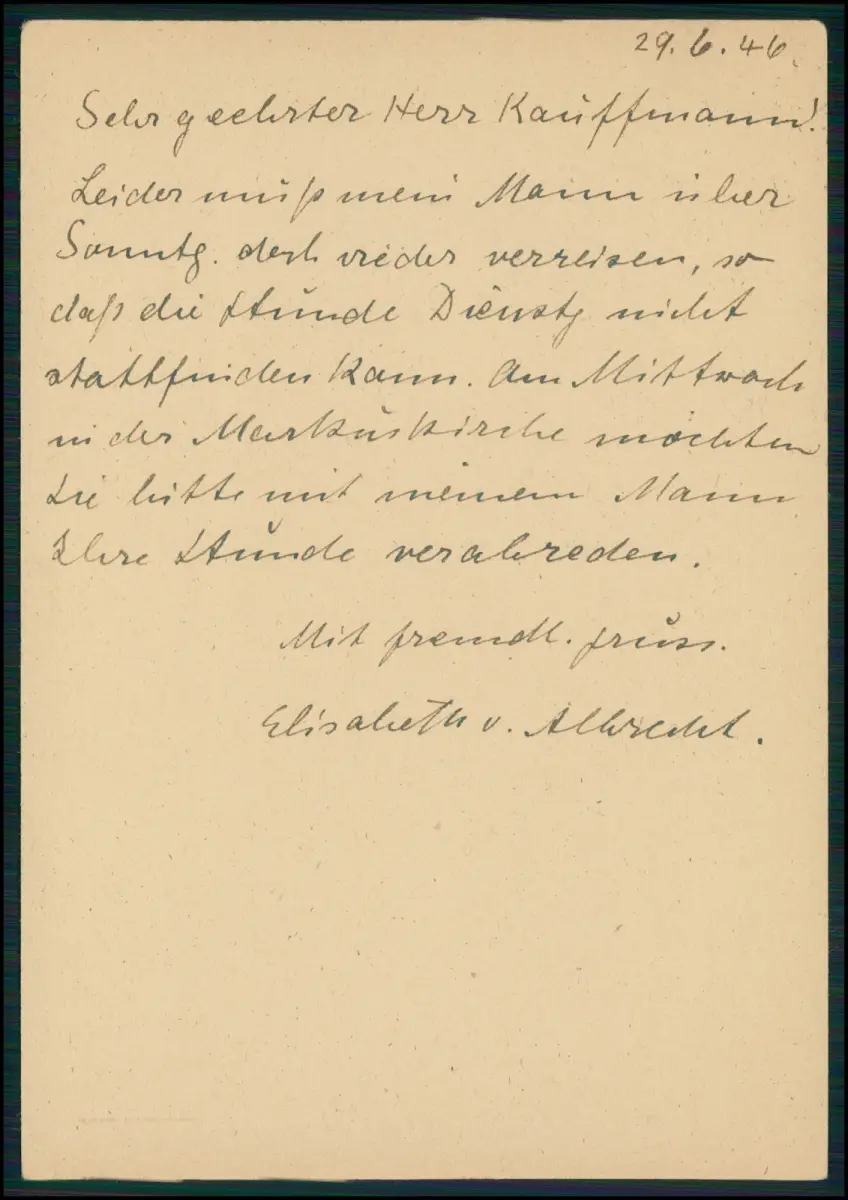 29.6.46.
Sehr geehrter Herr Kauffmann!
Leider muß mein Mann über
Sonntg. doch wieder verreisen, so
daß die Stunde Dienstg nicht
stattfinden kann. Am Mittwoch
in der Markuskirche möchten
Sie bitte mit meinem Mann
Ihre Stunde verabreden.
Mit freundl. Gruss.
Elisabeth v. Albrecht.